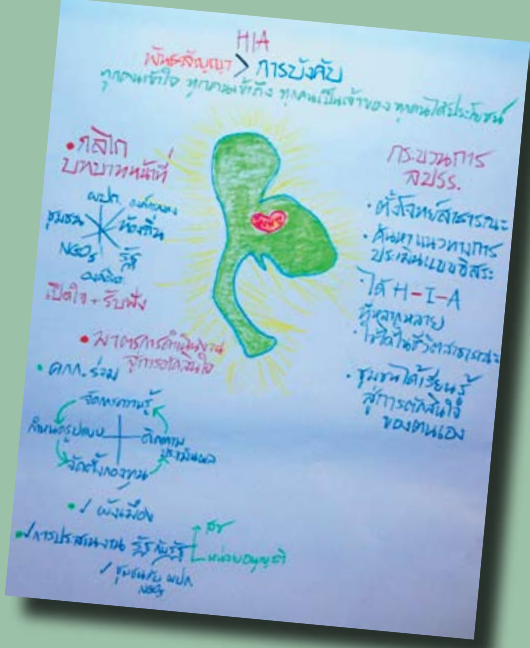 HIA
พันธะสัญญา > การบังคับ
ทุกคนเข้าใจ ทุกคนเข้าถึง ทุกคนเป็นเจ้าของ ทุกคนได้ประโยชน์
• กลไก
บทบาทหน้าที่
ผปก.
ชุมชน
ท้องถิ่น
NGOs
รัฐ
เปิดใจ + รับฟัง
• มาตรการดำเนินงาน
สู่การตัดสินใจ
• คกก. ร่วม
จัดการความรู้
กำหนดรูปแบบ
ติดตาม
ประเมินผล
จัดตั้งกองทุน
• / ผังเมือง
• / การประสานงาน รัฐกับรัฐ
สช
หน่วยอนุญาติ
/ ชุมชนกับ ผปก
NGOs
กระบวนการ
ลปรร.
• ตั้งโจทย์สาธารณะ
• ค้นหาแนวทางการ
ประเมินแบบอิสระ
• ได้ H-I-A
ที่หลากหลาย
ใช้ได้ในชีวิตสาธารณะ
• ชุมชนได้เรียนรู้
สู่การตัดสินใจ
ของตนเอง